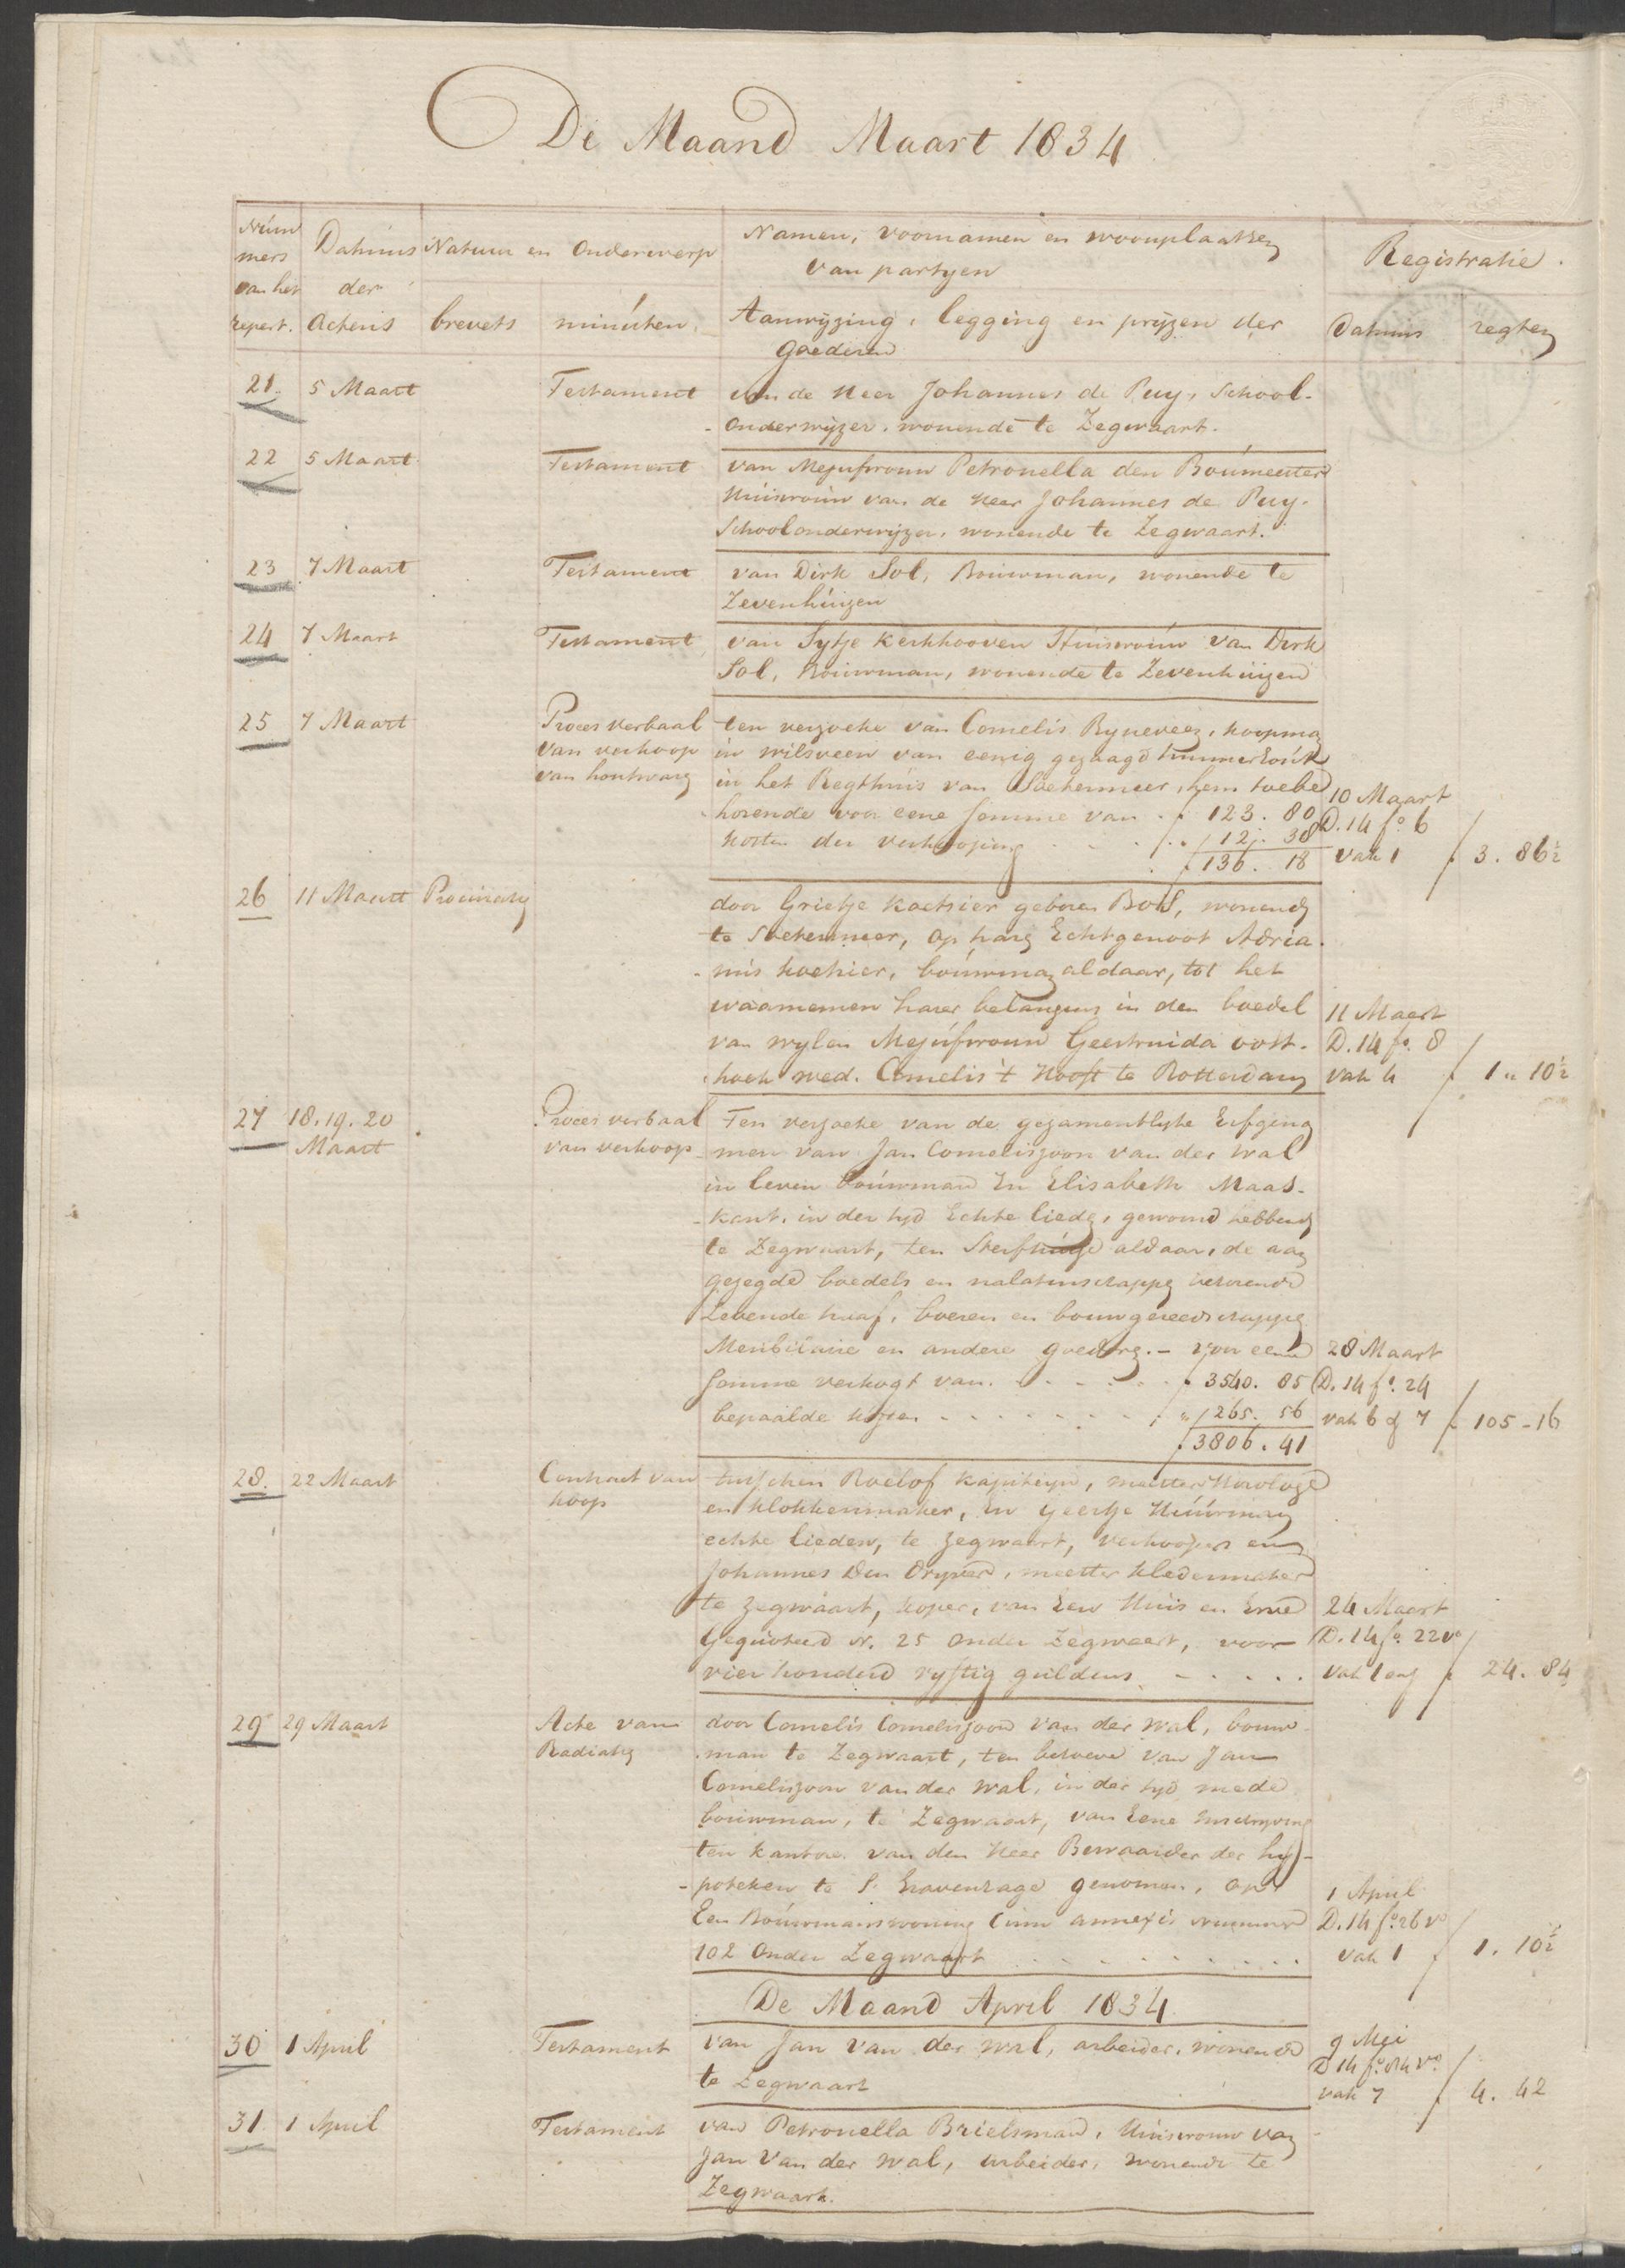 De Maand Maart 1834
Num
mers
van het
repert.
Datums
der
Actens
Natuur en Onderwerp
brevets
minuten
Namen, voornamen en woonplaatsen
van partyen
Aanwyzing, legging en pryzen der
Goederen
Registratie.
Datums
regten
21. 5 Maart Testament van de Heer Johannes de Puy, School-
onderwyzer, wonende te Zegwaart.
22 5 Maart Testament van Mejufvrouw Petronella den Boumeester
Huisvrouw van de Heer Johannes de Puy.
Schoolonderwyzer, wonende te Zegwaart.
23 7 Maart Testament van Dirk Sol, Bouwman, wonende te
Zevenhuizen
24 7 Maart Testament van Sytje Kerkhooven Huisvrouw van Dirk
Sol, Bouwman, wonende te Zevenhuizen
25 7 Maart Proces verbaal ten verzoeke van Cornelis Ryneveen, koopman
van verkoop in Wilsveen van eenig gezaagd timmerhout
van houtwaren in het Regthuis van Soetermeer, hem toebe
horende voor eene Somme van . ƒ 123. 80 10 Maart
D. 14 fo. 6
kosten der verkooping . . . " 12. 38
ƒ 136. 18 vak 1 ƒ 3. 86½
26 11 Maart Procuratie door Grietje Koetsier geboren Bol, wonende
te Soetermeer, op haren Echtgenoot Adria-
nus Koetsier, bouwman aldaar, tot het
waarnemen harer belangens in den boedel 11 Maart
van wylen Mejufvrouw Geertruida Oost- D. 14 fo. 8
hoek wed. Cornelis 't Hooft te Rotterdam vak 4 ƒ 1 " 10½
27 18. 19. 20 Proces verbaal Ten verzoeke van de gezamentlyke Erfgena
Maart van verkoop men van Jan Corneliszoon van der Wal
in leven bouwman En Elisabeth Maas-
kant, in der tyd Echte lieden, gewoond hebbende
te Zegwaart, ten Sterfhuize aldaar, de aan
gezegde boedels en nalatenschappen behorende
Levende haaf, boeren en bouwgereedschappen
Meubilaire en andere goederen. - voor eene 28 Maart
Somme verkogt van. . . . . ƒ 3540. 85 D. 14 fo. 24
bepaalde kosten . . . . . " 265. 56 vak 6 & 7 ƒ 105 - 16
ƒ 3806. 41
28. 22 Maart Contract van tusschen Roelof Kapiteyn, meester Horologie
koop en klokkenmaker, En Geertje Huurman
echte lieden, te Zegwaart, verkoopers en
Johannes den Dryver, meester kledermaker
te Zegwaart, koper, van Een Huis en Erve 24 Maart
Gequoteerd N. 25 onder Zegwaart, voor D. 14 fo. 22 vo
vier honderd vyftig guldens . . . . vak 1 en ƒ 24. 84
29 29 Maart Acte van door Cornelis Corneliszoon van der Wal, bouw-
Radiatie man te Zegwaart, ten behoeve van Jan
Corneliszoon van der Wal, in der tyd mede
bouwman, te Zegwaart, van Eene Inschryving
ten kantore van den Heer Bewaarder der hy-
potheken te S. Gravenhage genomen, op
Een Bouwmanswoning Cum annexis nummer 1 April
D. 14 fo. 26 vo
102 onder Zegwaart . . . . . vak 1 ƒ 1. 10½
De Maand April 1834
30 1 April Testament van Jan van der Wal, arbeider, wonende 9 Mei
te Zegwaart D 14 fo. 84 vo.
vak 7 ƒ 4. 42
31 1 April Testament van Petronella Brielsman, Huisvrouw van
Jan van der Wal, arbeider, wonende te
Zegwaart.